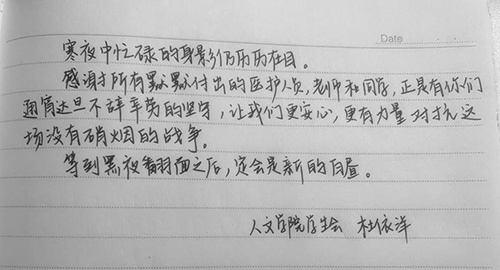 Date
寒夜中忙碌的身影仍历历在目。
感谢所有默默付出的医护人员,老师和同学,正是有你们
通宵达旦不辞辛劳的坚守,让我们更安心,更有力量对抗这
场没有硝烟的战争。
等到黑夜翻面之后,定会是新的白昼。
人文学院学生会 杜依洋